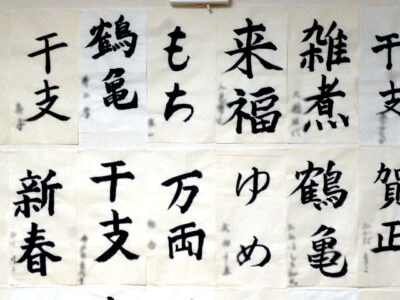 干支
鶴亀
もち
来福
雑煮
干支
新春
干支
万両
ゆめ
鶴亀
賀正